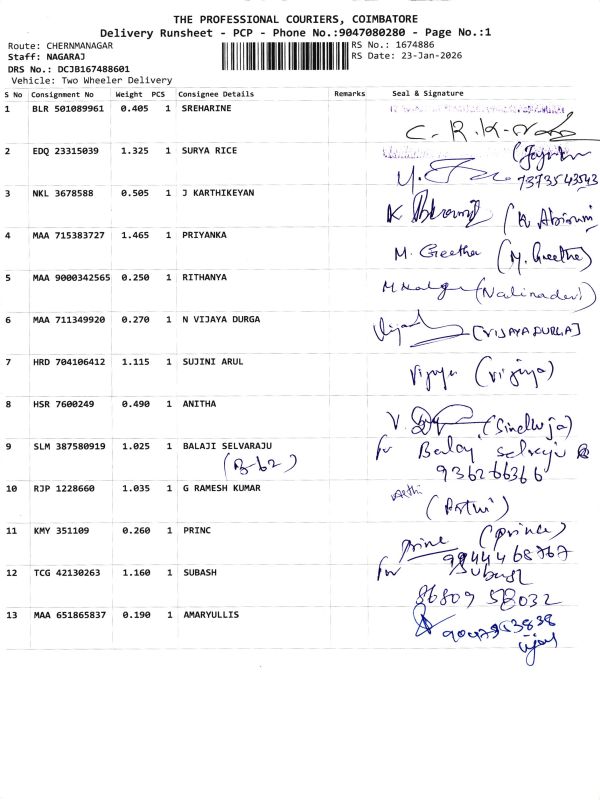 THE PROFESSIONAL COURIERS, COIMBATORE
Delivery Runsheet - PCP - Phone No.:9047080280 - Page No.:1
Route: CHERNMANAGAR RS No.: 1674886
Staff: NAGARAJ RS Date: 23-Jan-2026
DRS No.: DCJB167488601
Vehicle: Two Wheeler Delivery
S No Consignment No Weight PCS Consignee Details Remarks Seal & Signature
1 BLR 501089961 0.405 1 SREHARINE
C. R. K
2 EDQ 23315039 1.325 1 SURYA RICE
7373543543
3 NKL 3678588 0.505 1 J KARTHIKEYAN
K (K Abirami)
4 MAA 715383727 1.465 1 PRIYANKA
M. Geetha (M. Geetha)
5 MAA 9000342565 0.250 1 RITHANYA
(Nalinadevi)
6 MAA 711349920 0.270 1 N VIJAYA DURGA
[VIJAYA DURGA]
7 HRD 704106412 1.115 1 SUJINI ARUL
Vijaya (Vijaya)
8 HSR 7600249 0.490 1 ANITHA
V. (Sindhuja)
9 SLM 387580919 1.025 1 BALAJI SELVARAJU
for Balaji selvaraju
(B-62) 936266366
10 RJP 1228660 1.035 1 G RAMESH KUMAR
(Arthi)
11 KMY 351109 0.260 1 PRINC
prince (prince)
9944468767
12 TCG 42130263 1.160 1 SUBASH
for Subash
86809 58032
13 MAA 651865837 0.190 1 AMARYULLIS